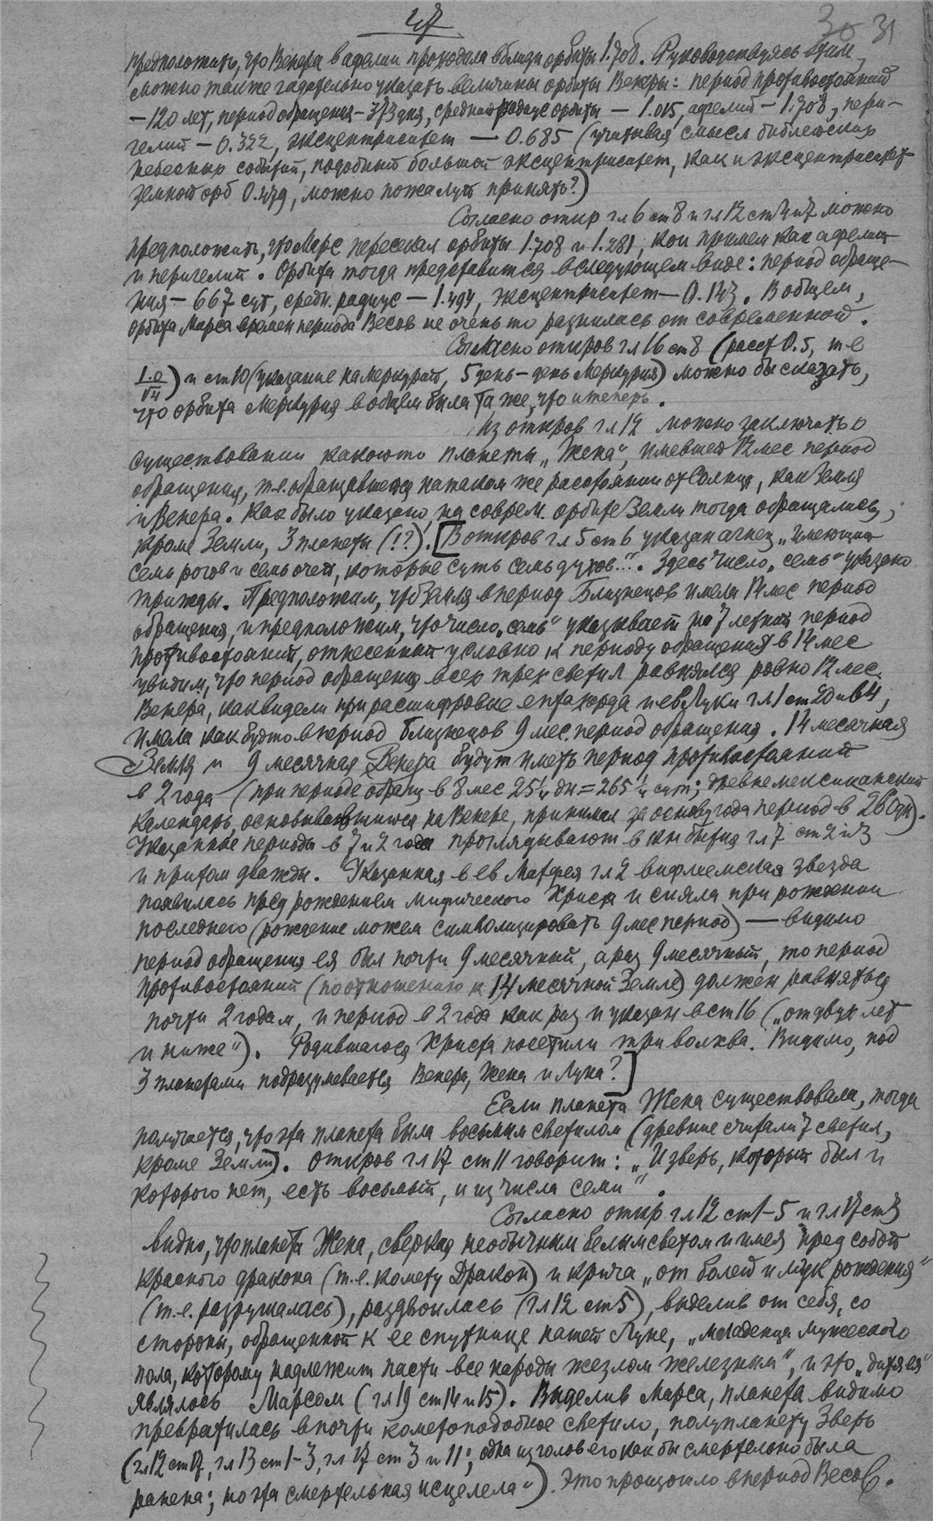 47
30 31
предположить, что Венера в афелии проходила вблизи орбиты 1.708. Руководствуясь этим,
можно также гадательно указать величины орбиты Венеры: период противостояний
— 120 лет, период обращения — 373 дня, средний радиус орбиты — 1.015, афелий — 1.708, пери-
гелий — 0.322, эксцентриситет — 0.685 (учитывая смысл библейских
небесных событий, подобный большой эксцентриситет, как и эксцентриситет
земной орб 0.479, можно пожалуй принять?)
Согласно откр гл 6 ст 8 и гл 12 ст 3 и 7 можно
предположить, что Марс пересекал орбиты 1.708 и 1.281, кои примем как афелий
и перигелий. Орбита тогда представится в следующем виде: период обраще-
ния — 667 сут, средн. радиус — 1.494, эксцентриситет — 0.143. В общем,
орбита Марса времен периода Весов не очень то разнилась от современной.
Согласно откров гл 16 ст 8 (расст 0.5, т.е
1.0/√4) и ст 10 (указание на Меркурий, 5 день — день Меркурия) можно бы сказать,
что орбита Меркурия в общем была та же, что и теперь.
Из откров гл 12 можно заключить о
существовании какой то планеты „Жена“, имевшей 12 мес период
обращения, т.е. обращавшейся на таком же расстоянии от Солнца, как Земля
и Венера. Как было указано, на соврем. орбите Земли тогда обращались,
кроме Земли, 3 планеты (!?). [В откров гл 5 ст 6 указан агнец „имеющий
семь рогов и семь очей, которые суть семь духов...“. Здесь число „семь“ указано
трижды. Предположим, что Земля в период Близнецов имела 14 мес период
обращения, и предположим, что число „семь“ указывает на 7 летний период
противостояний, отнесенный условно к периоду обращения в 14 мес
увидим, что период обращения всех трех светил равнялся ровно 12 мес.
Венера, как видели при расшифровке ептахорда и ев Луки гл 1 ст 20 и 64,
имела как будто в период Близнецов 9 мес. период обращения. 14 месячная
Земля и 9 месячная Венера будут иметь период противостояний
в 2 года (при периоде обращ в 8 мес 25¼ дн = 265¼ сут; древнемексиканский
календарь, основывавшийся на Венере, принимал за основу года период в 260 дн).
Указанные периоды в 7 и 2 года проглядывают в кн бытия гл 7 ст 2 и 3
и притом дважды. Указанная в ев Матфея гл 2 вифлиемская звезда
появилась пред рождением мифического Христа и сияла при рождении
последнего (рождение может символизировать 9 мес период) — видимо
период обращения ея был почти 9 месячный, а раз 9 месячный, то период
противостояний (по отношению к 14 месячной Земле) должен равняться
почти 2 годам, и период в 2 года как раз и указан в ст 16 („от двух лет
и ниже“). Родившагося Христа посетили три волхва. Видимо, под
3 планетами подразумевается Венера, Жена и Луна?]
Если планета Жена существовала, тогда
получается, что эта планета была восьмым светилом (древние считали 7 светил,
кроме Земли). Откров гл 17 ст 11 говорит: „И зверь, который был и
которого нет, есть восьмый, и из числа семи“.
Согласно откр гл 12 ст 1–5 и гл 17 ст 3
видно, что планета Жена, сверкая необычным белым светом и имея пред собой
красного дракона (т.е. комету Дракон) и крича „от болей и мук рождения“
(т.е. разрушалась), раздвоилась (гл 12 ст 5), выделив от себя, со
стороны, обращенной к ее спутнице нашей Луне, „младенца мужеского
пола, которому надлежит пасти все народы жезлом железным“, и это „дитя ея“
являлось Марсом (гл 19 ст 14 и 15). Выделив Марса, планета видимо
превратилась в почти кометоподобное светило, полупланету Зверь
(гл 12 ст 17, гл 13 ст 1–3, гл 17 ст 3 и 11; „одна из голов его как бы смертельно была
ранена; но эта смертельная исцелела“). Это произошло в период Весов.